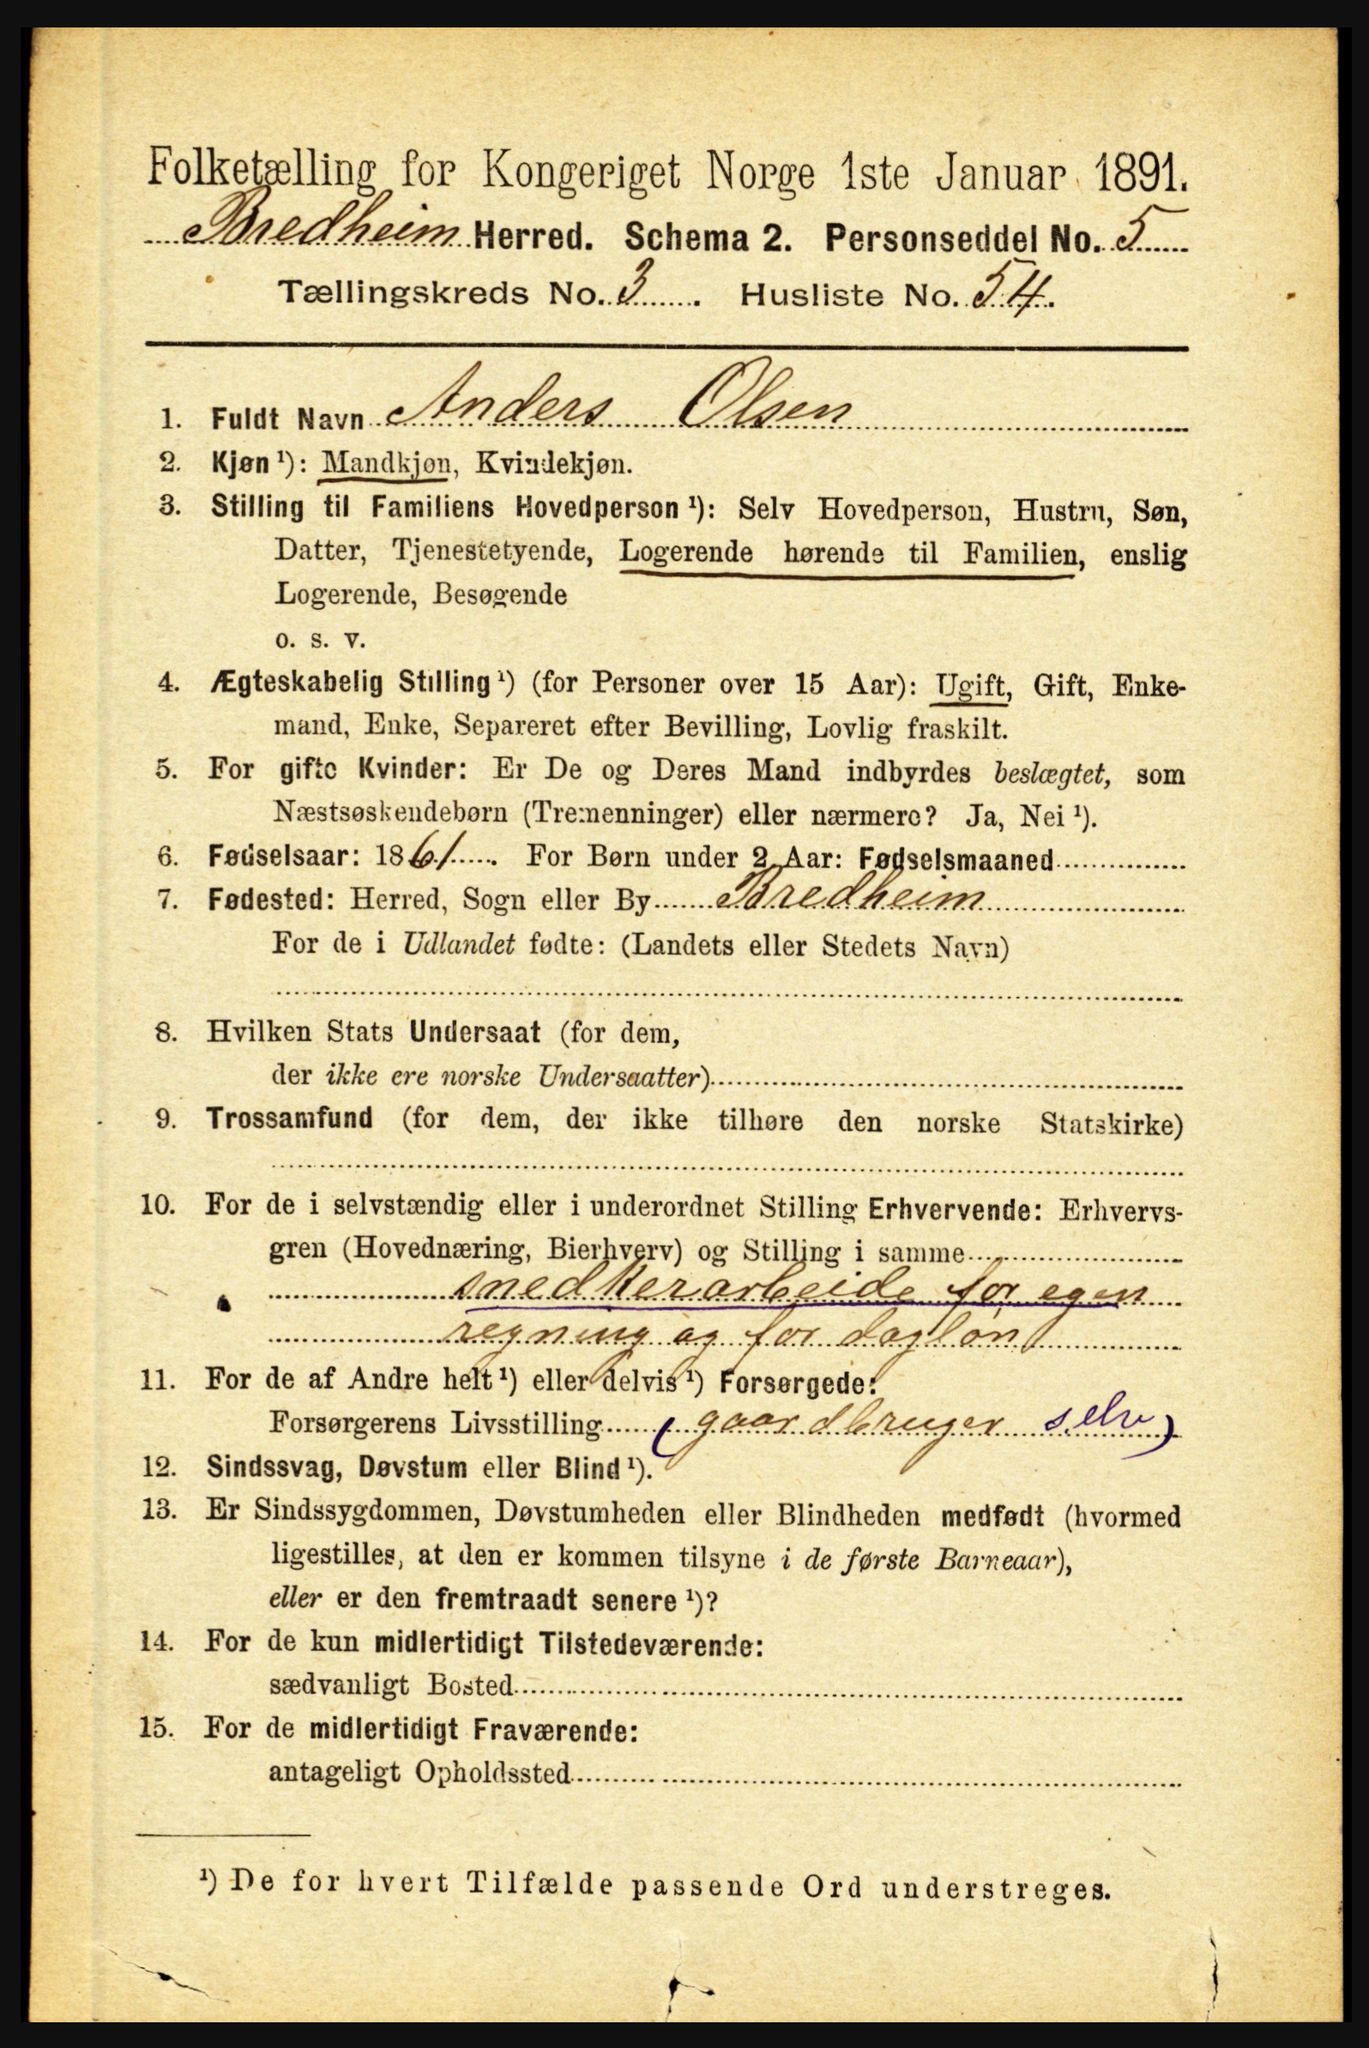 Folketælling for Kongeriget Norge 1ste Januar 1891.
Bredheim Herred. Schema 2. Personseddel No. 5
Tællingskreds No. 3. Husliste No. 54.
1. Fuldt Navn Anders Olsen
2. Kjøn ¹): Mandkjøn, Kvindekjøn.
3. Stilling til Familiens Hovedperson ¹): Selv Hovedperson, Hustru, Søn,
Datter, Tjenestetyende, Logerende hørende til Familien, enslig
Logerende, Besøgende
o. s. v.
4. Ægteskabelig Stilling ¹) (for Personer over 15 Aar): Ugift, Gift, Enke-
mand, Enke, Separeret efter Bevilling, Lovlig fraskilt.
5. For gifte Kvinder: Er De og Deres Mand indbyrdes beslægtet, som
Næstsøskendebørn (Tremenninger) eller nærmere? Ja, Nei ¹).
6. Fødselsaar: 1861. For Børn under 2 Aar: Fødselsmaaned
7. Fødested: Herred, Sogn eller By Bredheim
For de i Udlandet fødte: (Landets eller Stedets Navn)
8. Hvilken Stats Undersaat (for dem,
der ikke ere norske Undersaatter)
9. Trossamfund (for dem, der ikke tilhøre den norske Statskirke)
10. For de i selvstændig eller i underordnet Stilling Erhvervende: Erhvervs-
gren (Hovednæring, Bierhverv) og Stilling i samme
snedkerarbeide for egen
regning og for dagløn
11. For de af Andre helt ¹) eller delvis ¹) Forsørgede:
Forsørgerens Livsstilling (gaardbruger selv)
12. Sindssvag, Døvstum eller Blind ¹).
13. Er Sindssygdommen, Døvstumheden eller Blindheden medfødt (hvormed
ligestilles, at den er kommen tilsyne i de første Barneaar),
eller er den fremtraadt senere ¹)?
14. For de kun midlertidigt Tilstedeværende:
sædvanligt Bosted
15. For de midlertidigt Fraværende:
antageligt Opholdssted
¹) De for hvert Tilfælde passende Ord understreges.